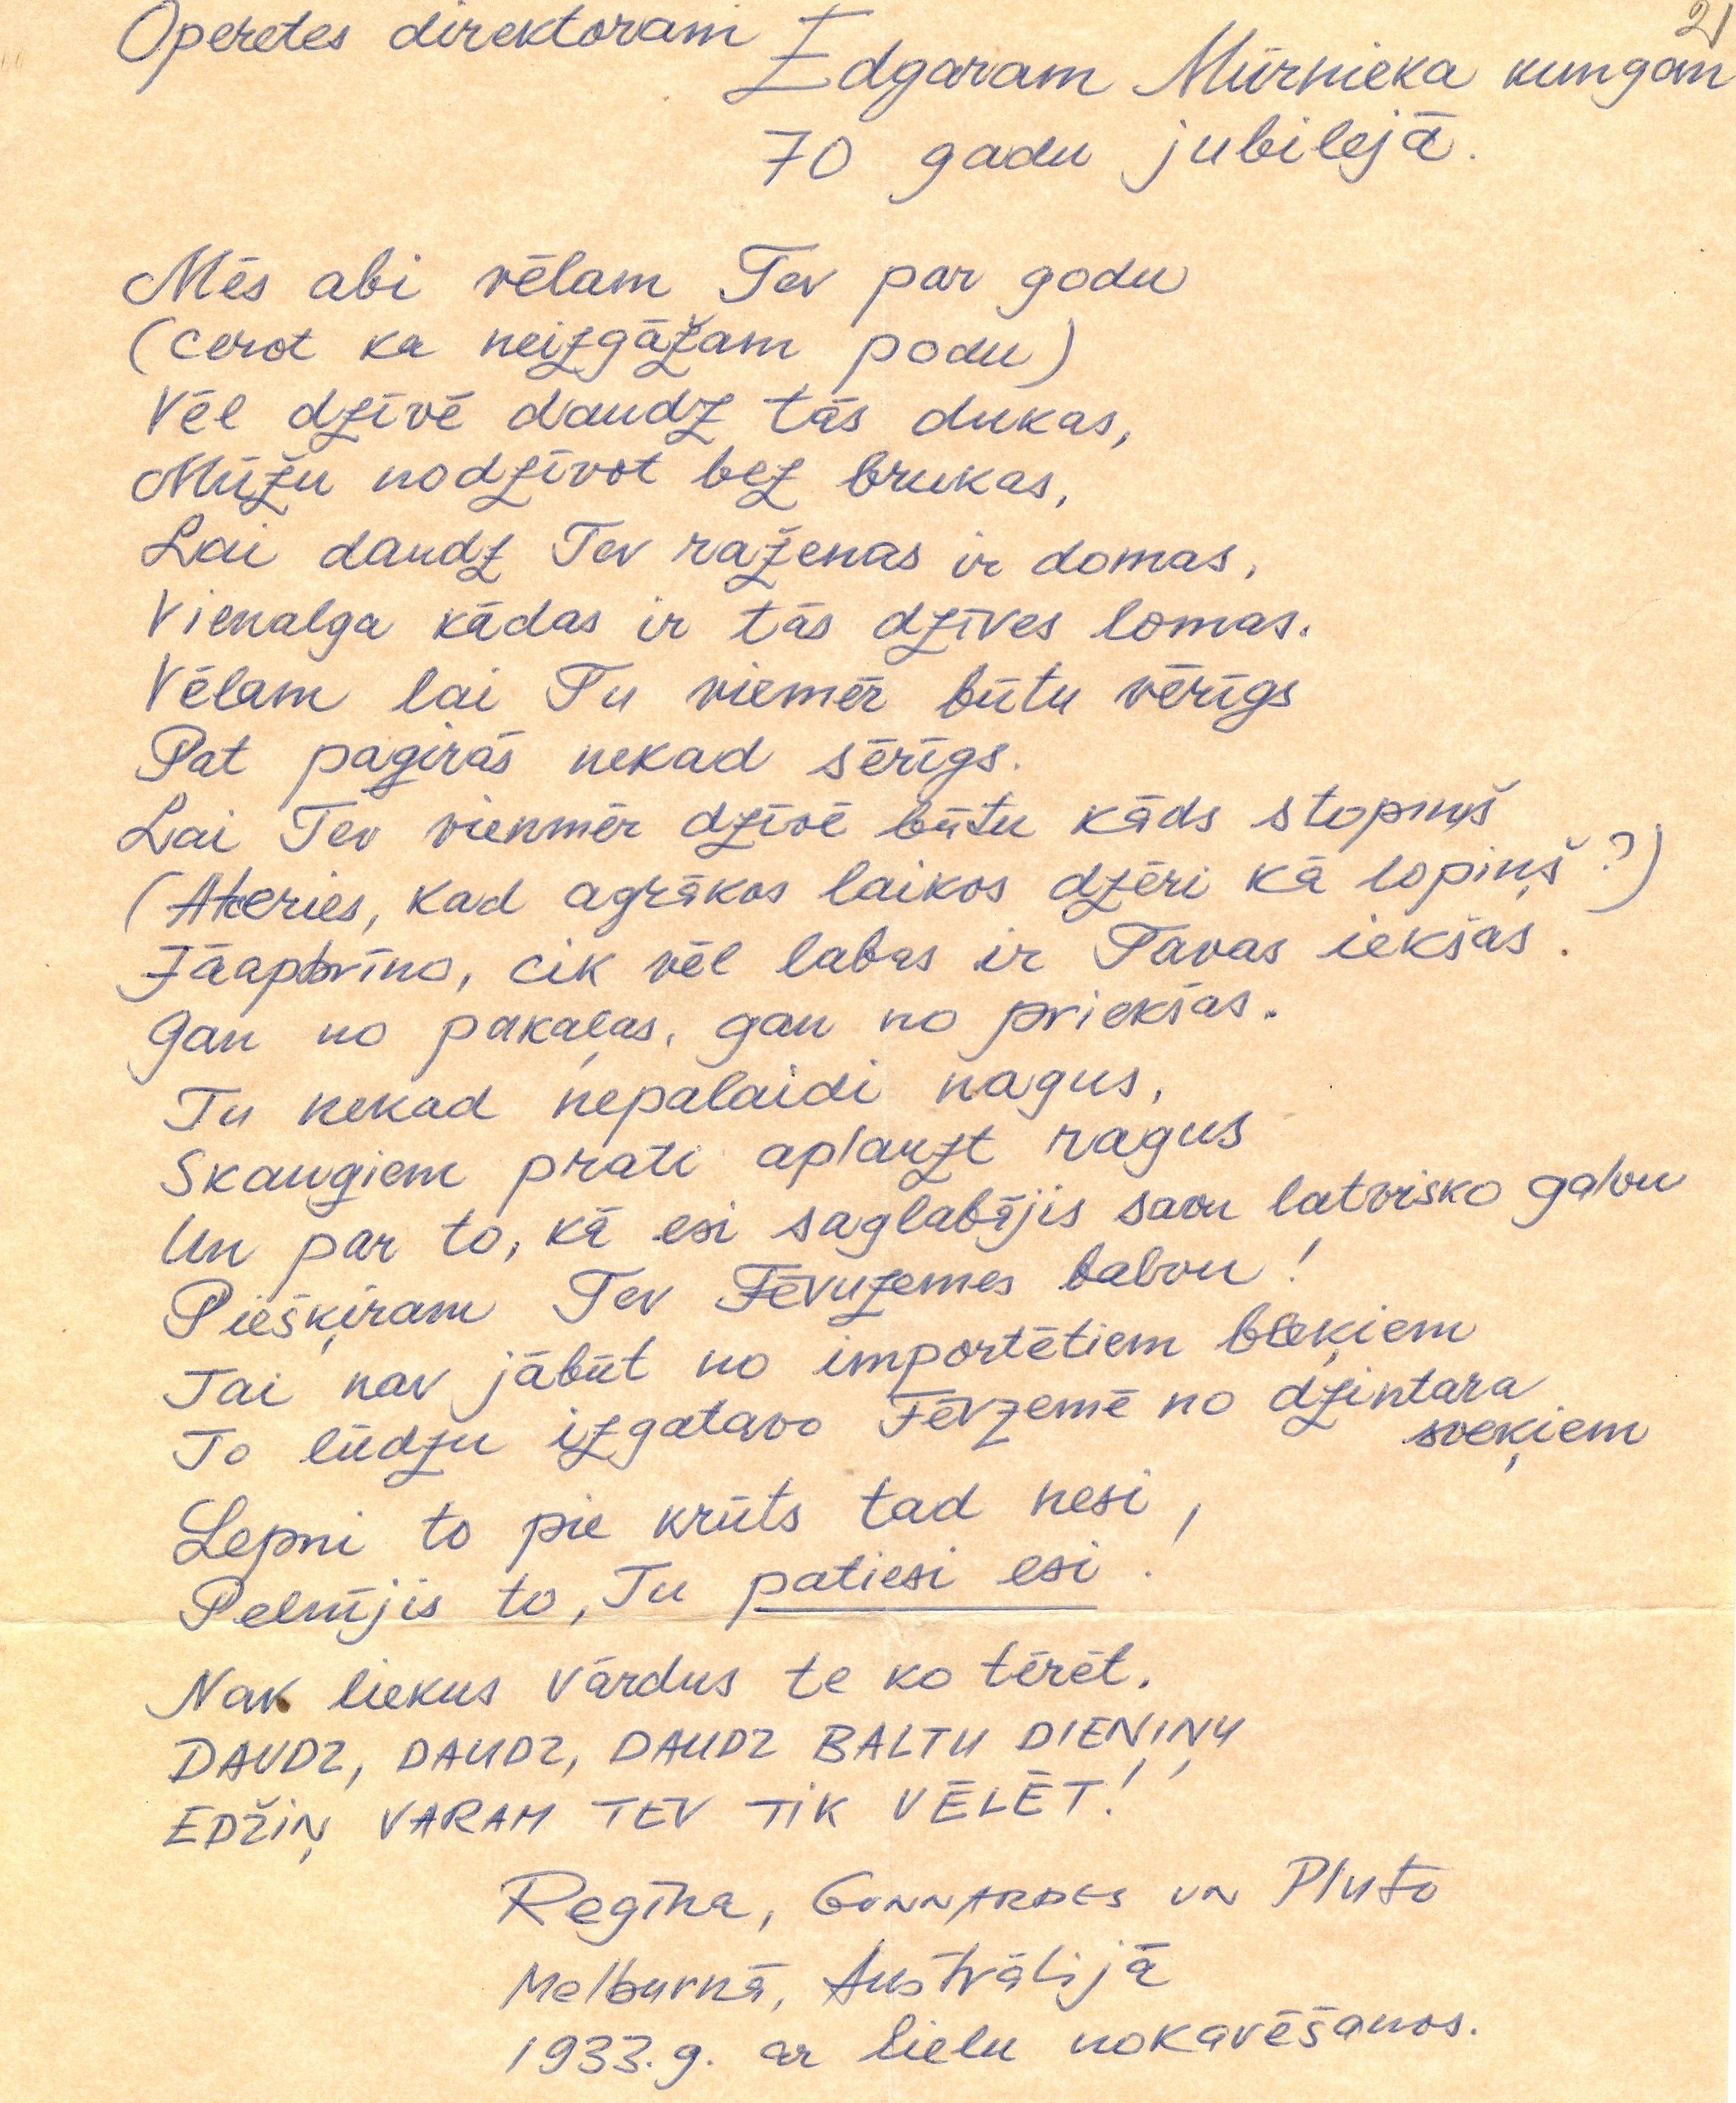 2)
Operetes direktoram
Edgaram Mūrnieka kungam
70 gadu jubilejā.
Mēs abi vēlam Tev par godu
(cerot ka neizgāžam podu)
Vēl dzīvē daudz tās dukas,
Mūžu nodzīvot bez brukas,
Lai daudz Tev raženas ir domas,
Vienalga kādas ir tās dzīves lomas.
Vēlam lai Tu viemēr būtu vērīgs
Pat pagirās nekad sērīgs.
Lai Tev vienmēr dzīvē būtu kāds stopiņš
(Atceries, kad agrākos laikos dzēri kā lopiņš?)
Jāapbrīno, cik vēl labas ir Tavas iekšas.
Gan no pakaļas, gan no priekšas.
Tu nekad nepalaidi nagus,
Skauģiem prati aplauzt ragus
Un par to, kā esi saglabājis savu latvisko galvu
Piešķiram Tev Tēvuzemes balvu!
Tai nav jābūt no importētiem bleķiem
To lūdzu izgatavo Tēvzemē no dzintara
sveķiem
Lepni to pie krūts tad nesi,
Pelnījis to, Tu patiesi esi!
Nav liekus vārdus te ko tērēt.
DAUDZ, DAUDZ, DAUDZ BALTU DIENIŅU
EDŽIŅ VARAM TEV TIK VĒLĒT!
Regīna, GUNNARDES UN Pluto
Melburnā, Austrālijā
1933.g. ar lielu nokavēšanos.